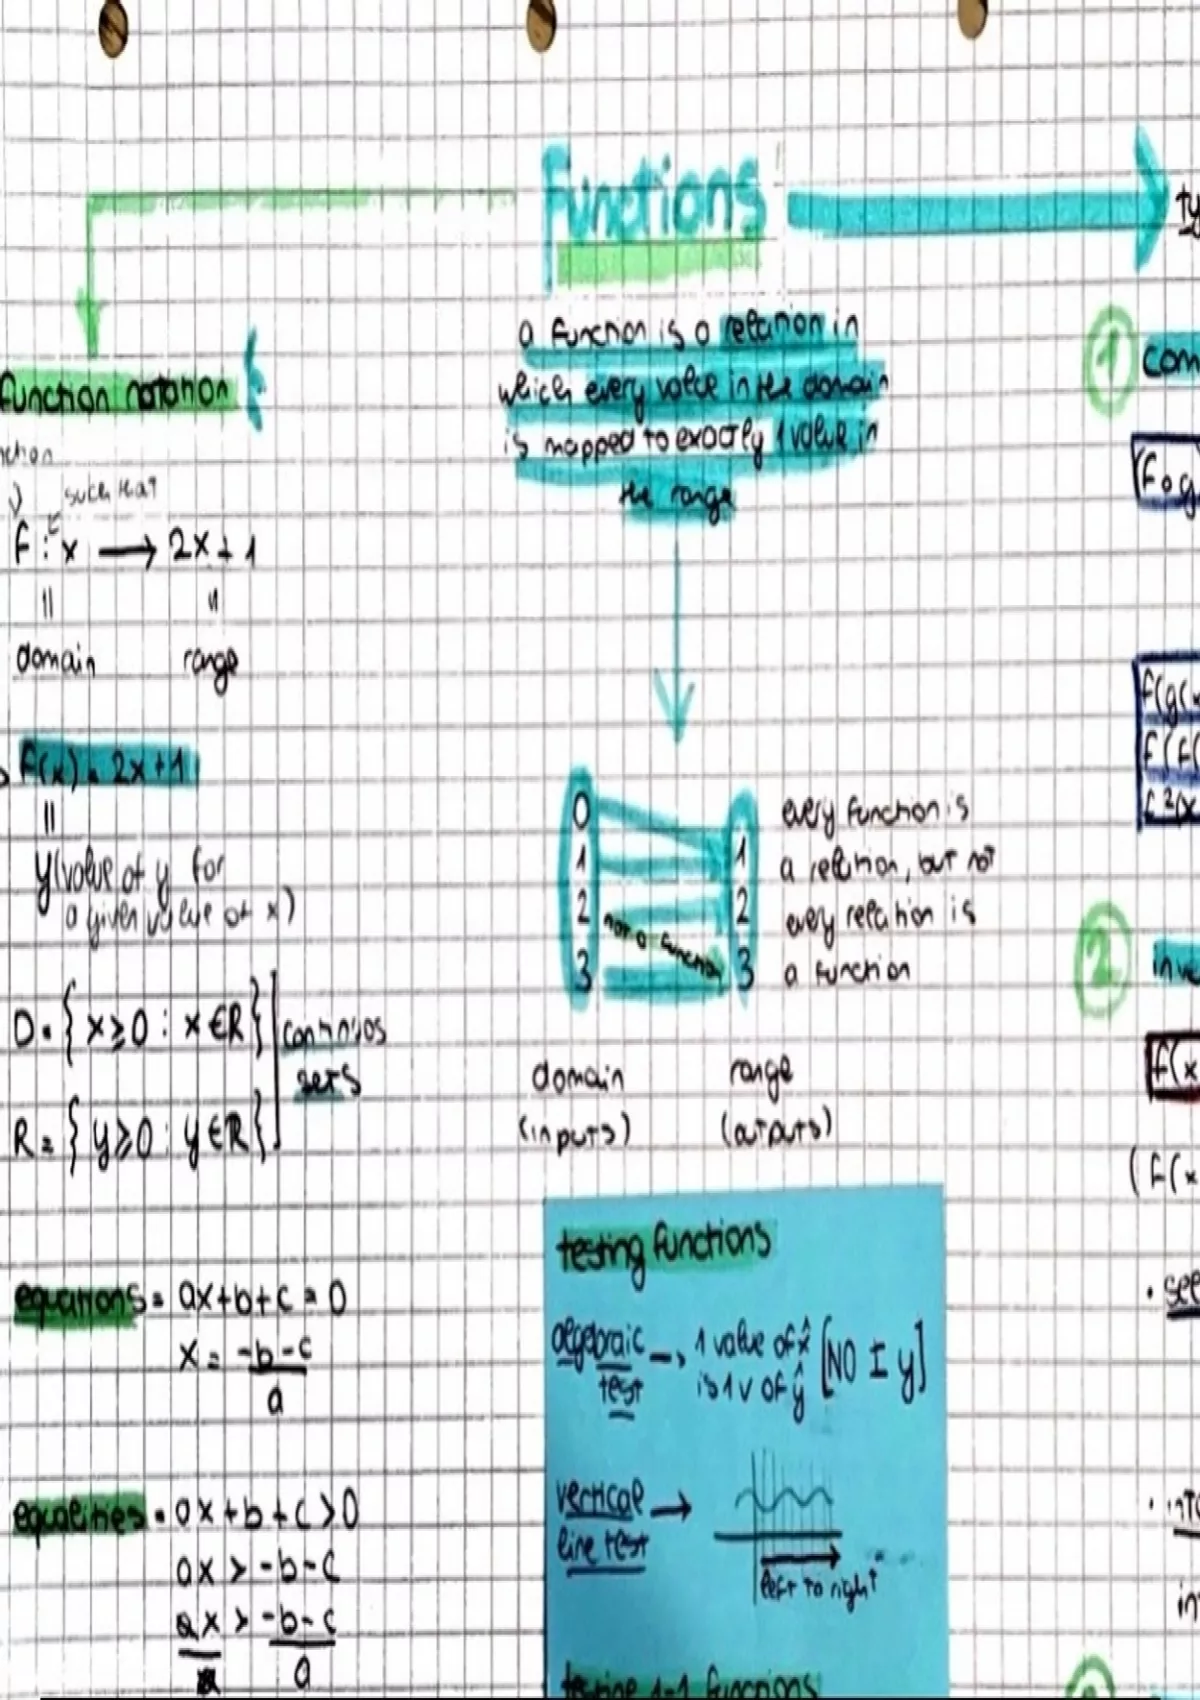 Functions
a function is a relation in
which every value in the domain
is mapped to exactly 1 value in
the range
function notation
such that
f : x → 2x + 1
domain range
f(x) = 2x + 1
y (value of y for
a given value of x)
D = { x ≥ 0 : x ∈ R }
R = { y ≥ 0 : y ∈ R }
sets
equations = ax + b + c = 0
x = -b - c
a
equalities = ax + b + c > 0
ax > -b - c
ax > -b - c
a a
0
1 1
2 2
3 3
not a function
every function is
a relation, but not
every relation is
a function
domain range
(inputs) (outputs)
testing functions
algebraic → 1 value of x [NO ± y]
test is 1 v of y
vertical →
line test
left to right
testing 1-1 functions
1
(f o g
f(g(
f(f(
2
f(x
(f(x